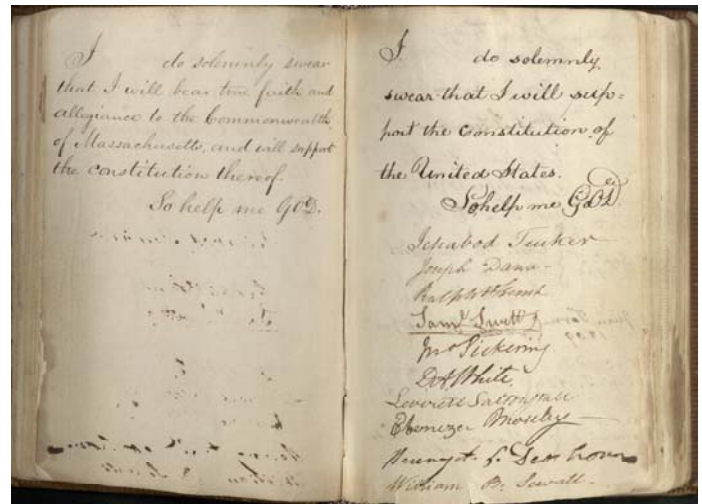 I do solemnly swear
that I will bear true faith and
allegiance to the Commonwealth
of Massachusetts, and will support
the constitution thereof.
So help me GOD.
I do solemnly
swear that I will sup=
port the constitution of
the United States.
So help me GOD.
Ichabod Tucker
Joseph Dana
Ralph H French
Saml Swett
Jno Pickering
D A White
Leverett Saltonstall
Ebenezer Moseley
William B. Sewall